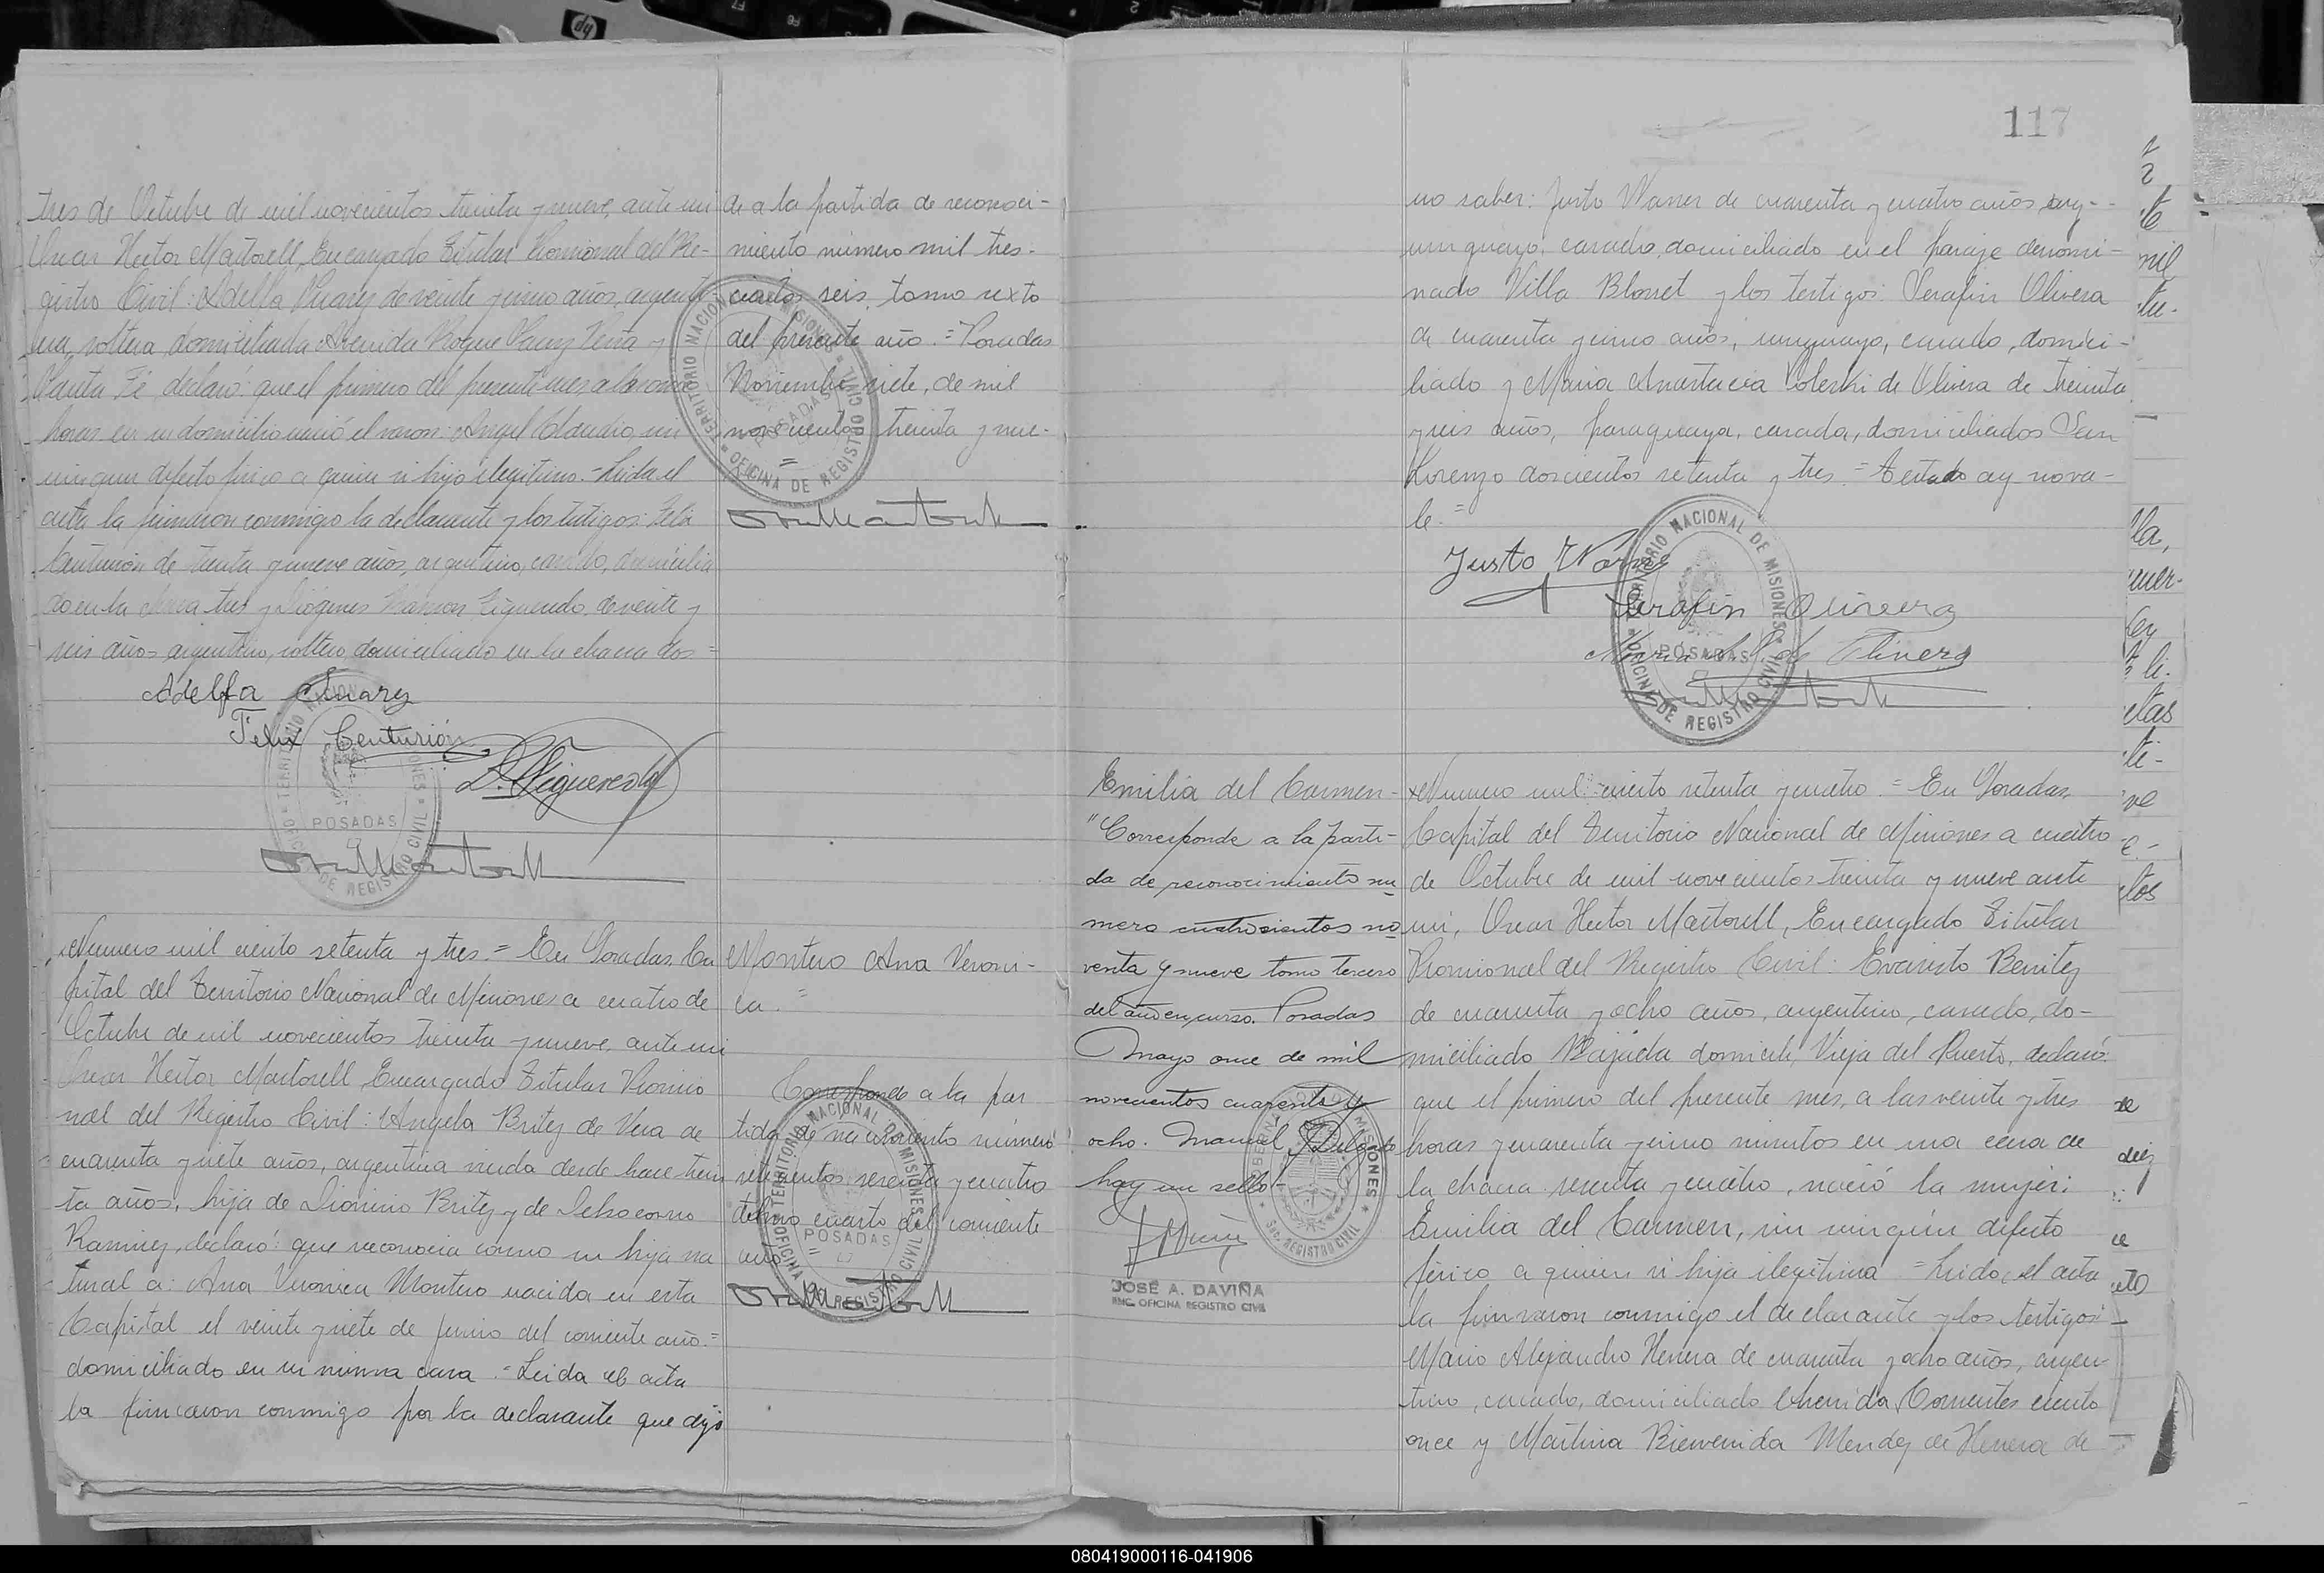 117
tres de Octubre de mil novecientos treinta y nueve, ante mi
Oscar Hector Martorell, Encargado Titular Provisional del Re-
gistro Civil: Adelfa Suarez de veinte y cinco años, argenti-
na, soltera, domiciliada Avenida Roque Saenz Peña y
Santa Fé, declaró: que el primero del presente mes, a las once
horas en su domicilio nació el varon: Angel Claudio, sin
ningun defecto fisico a quien hijo ilegitimo.= Leida el
acta la firmaron conmigo la declarante y los testigos: Felix
Centurión de treinta y nueve años, argentino, casado, domicilia
do en la chacra tres y Diogenes Ramon Figueredo, de veinte y
seis años argentino, soltero domiciliado en la chacra dos =
Adelfa Suarez
Felix Centurión
D. R. Figueredo
TERRITORIO NACIONAL DE MISIONES
POSADAS
OFICINA DE REGISTRO CIVIL
de a la partida de reconoci-
miento número mil tres-
cientos seis, tomo sexto
del presente año.= Posadas
Noviembre siete, de mil
novecientos treinta y nue-
TERRITORIO NACIONAL DE MISIONES
POSADAS
OFICINA DE REGISTRO CIVIL
Numero mil ciento setenta y tres.= En Posadas, Ca
pital del Territorio Nacional de Misiones a cuatro de
Octubre de mil novecientos treinta y nueve, ante mi
Oscar Hector Martorell, Encargado Titular Provisio
nal del Registro Civil: Angela Britez de Vera de
cuarenta y siete años, argentina viuda desde hace trein
ta años, hija de Dionicio Britez y de
Ramirez, declaró: que reconocia como su hija na
tural a: Ana Veronica Montero nacida en esta
Capital el veinte y siete de Junio del corriente año.=
domiciliado en su misma casa.= Leida el acta
la firmaron conmigo por la declarante que dijo
Montero Ana Veroni-
ca.=
Corresponde a la par
tida de nacimiento número
setecientos sesenta y cuatro
tomo cuarto del corriente
año
=
TERRITORIO NACIONAL DE MISIONES
POSADAS
OFICINA DE REGISTRO CIVIL
no saber: Justo Warner de cuarenta y cuatro años, arg-
uruguayo, casado, domiciliado en el paraje denomi-
nado Villa Blosset y los testigos: Serafin Olivera
de cuarenta y cinco años, uruguayo, casado, domici-
liado y Maria Anastacia de Olivera de treinta
y seis años, paraguaya, casada, domiciliados San
Lorenzo doscientos setenta y tres.= Testado arg no va-
le.=
Justo Warner
Serafin Olivera
Maria A. P. de Olivera
TERRITORIO NACIONAL DE MISIONES
POSADAS
OFICINA DE REGISTRO CIVIL
Emilia del Carmen-
"Corresponde a la parti-
da de reconocimiento nu
mero cuatrocientos no
venta y nueve tomo tercero
del año en curso. Posadas
Mayo once de mil
novecientos cuarenta y
ocho. Manuel Delgado
hay un sello-"
MISIONES
SEC. REGISTRO CIVIL
JOSÉ A. DAVIÑA
ENC. OFICINA REGISTRO CIVIL
Numero mil ciento setenta y cuatro.= En Posadas,
Capital del Territorio Nacional de Misiones a cuatro
de Octubre de mil novecientos treinta y nueve ante
mi, Oscar Hector Martorell, Encargado Titular
Provisional del Registro Civil: Evaristo Benitez
de cuarenta y ocho años, argentino, casado, do-
miciliado Bajada Vieja del Puerto, declaró:
que el primero del presente mes, a las veinte y tres
horas y cuarenta y cinco minutos en una casa de
la chacra sesenta y cuatro, nació la mujer:
Emilia del Carmen, sin ningún defecto
fisico a quien hija ilegitima = Leida el acta
la firmaron conmigo el declarante y los testigos:
Mario Alejandro Herrera de cuarenta y ocho años, argen-
tino, casado, domiciliado Avenida Corrientes ciento
once y Martina Bienvenida Mendez de Herrera de
080419000116-041906